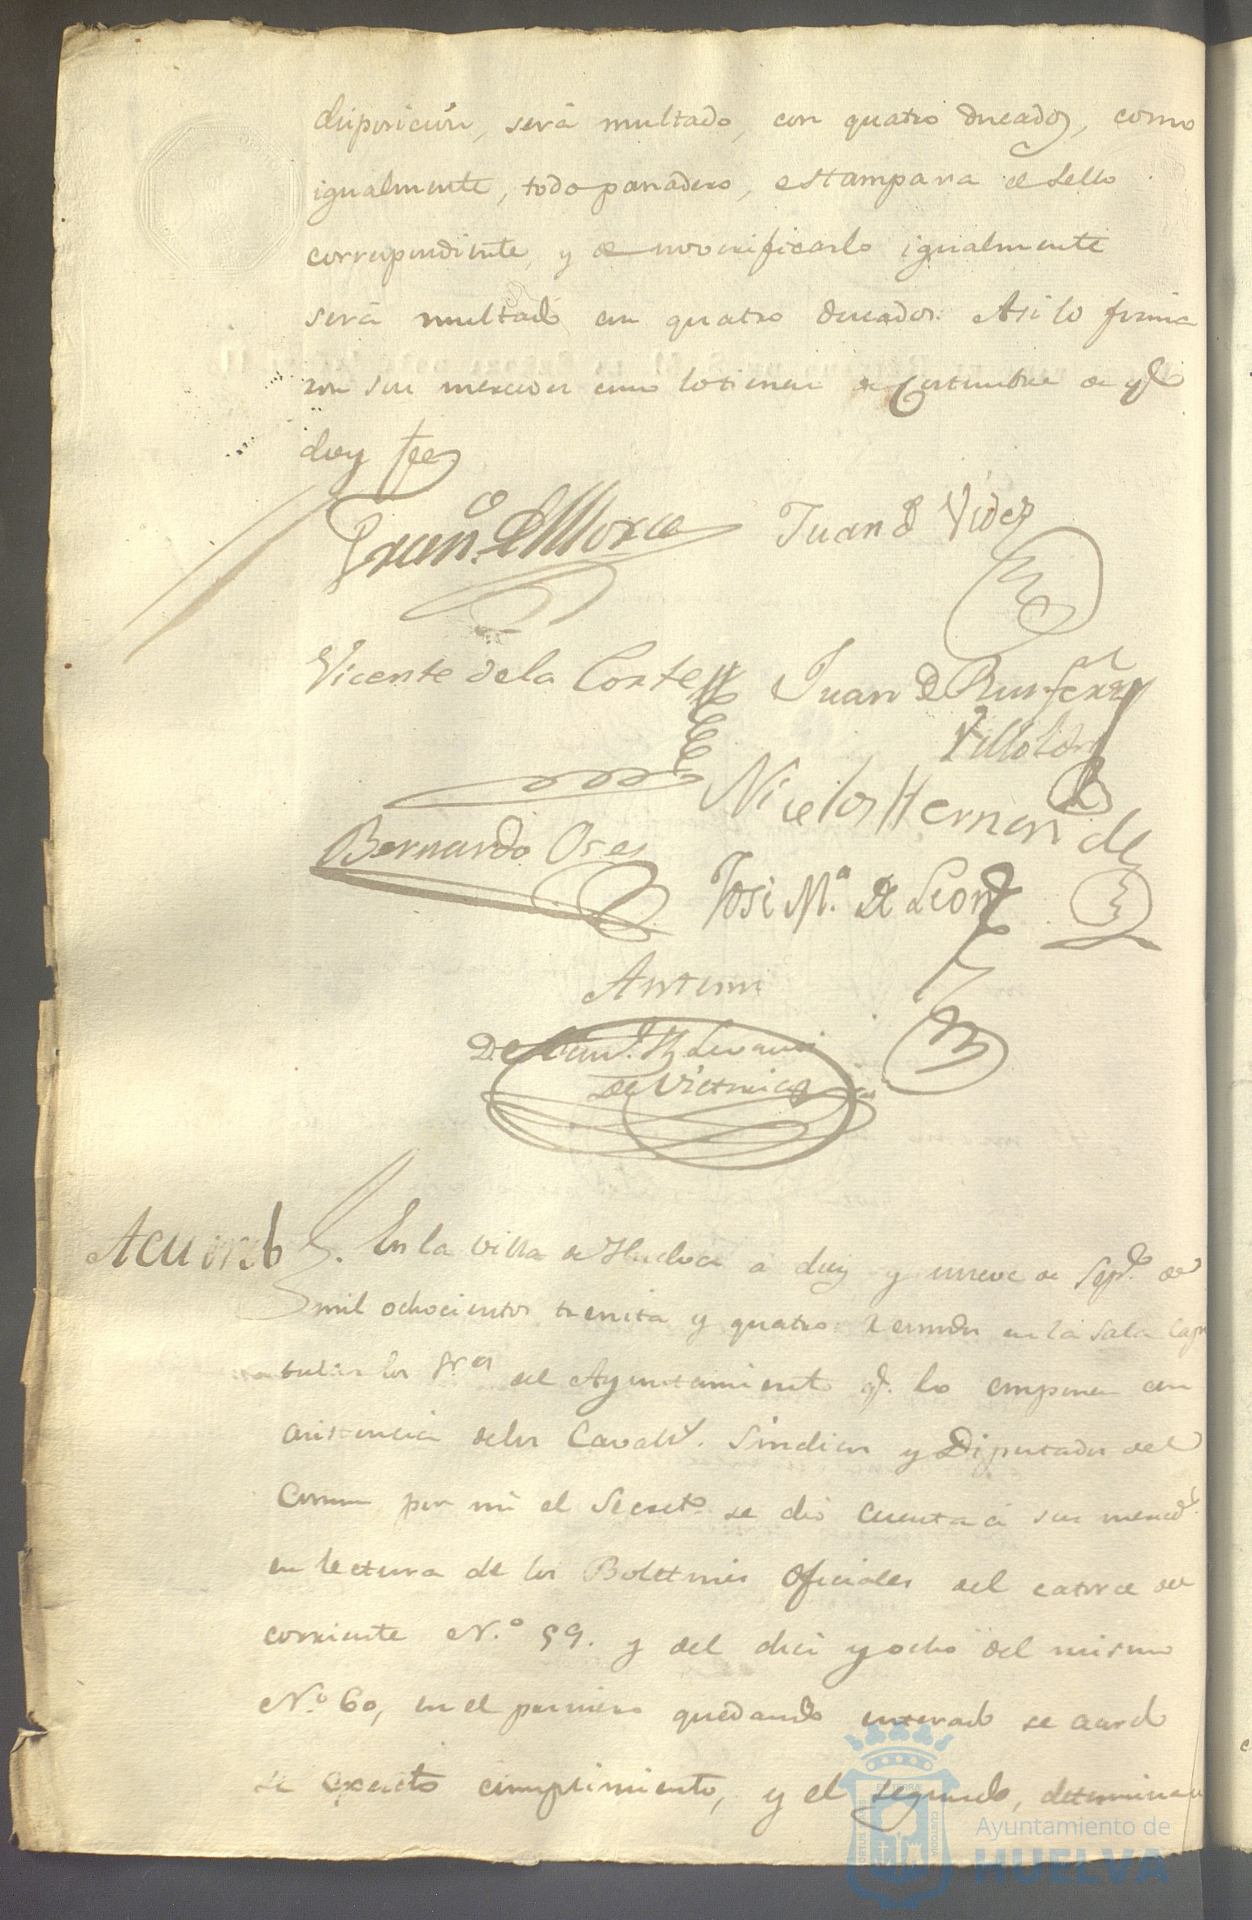 disposición, será multado, con quatro ducados, como
igualmente, todo panadero, estampara el sello
correspondiente, y de no verificarlo igualmente
será multado en quatro ducados. Asi lo firma
ron sus mercedes como lo tienen de Costumbre de qe
doy fee
Franco. de Mora Juan d Vides
Vicente de la Corte Juan D Ruifernz
Villoldo
Nicolos Hernandes
Bernardo Oses
José Ma. de Leon
Antemi
de Victoria
Acuerdo En la villa de Huelva a diez y nueve de Sepe. de
mil ochocientos treinta y quatro reunidos en la Sala Capi
tular los Sres del Ayuntamiento q. lo componen con
asistencia delos Cavalls. Sindicos y Diputados del
Comun por mi el Secreto. se dió cuenta á sus merceds.
en lectura de los Boletines Oficiales del catorce del
corriente N.º 59. y del diez y ocho del mismo
N.º 60, en el primero quedando enterado se acordo
su exacto cumplimiento, y el segundo, determinan
Ayuntamiento de
HUELVA